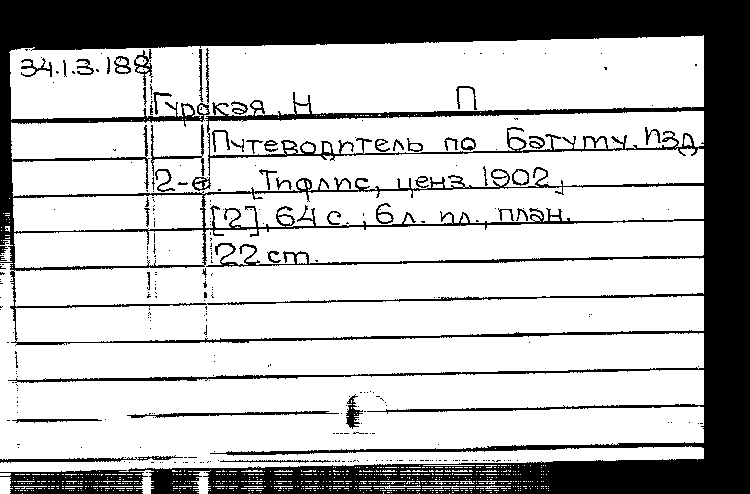 34.1.3.188
Гурская, Н П
Путеводитель по Батуму. Изд.
2-е. [Тифлис, ценз. 1902]
[2], 64 с.; 6 л. пл., план.
22 cm.